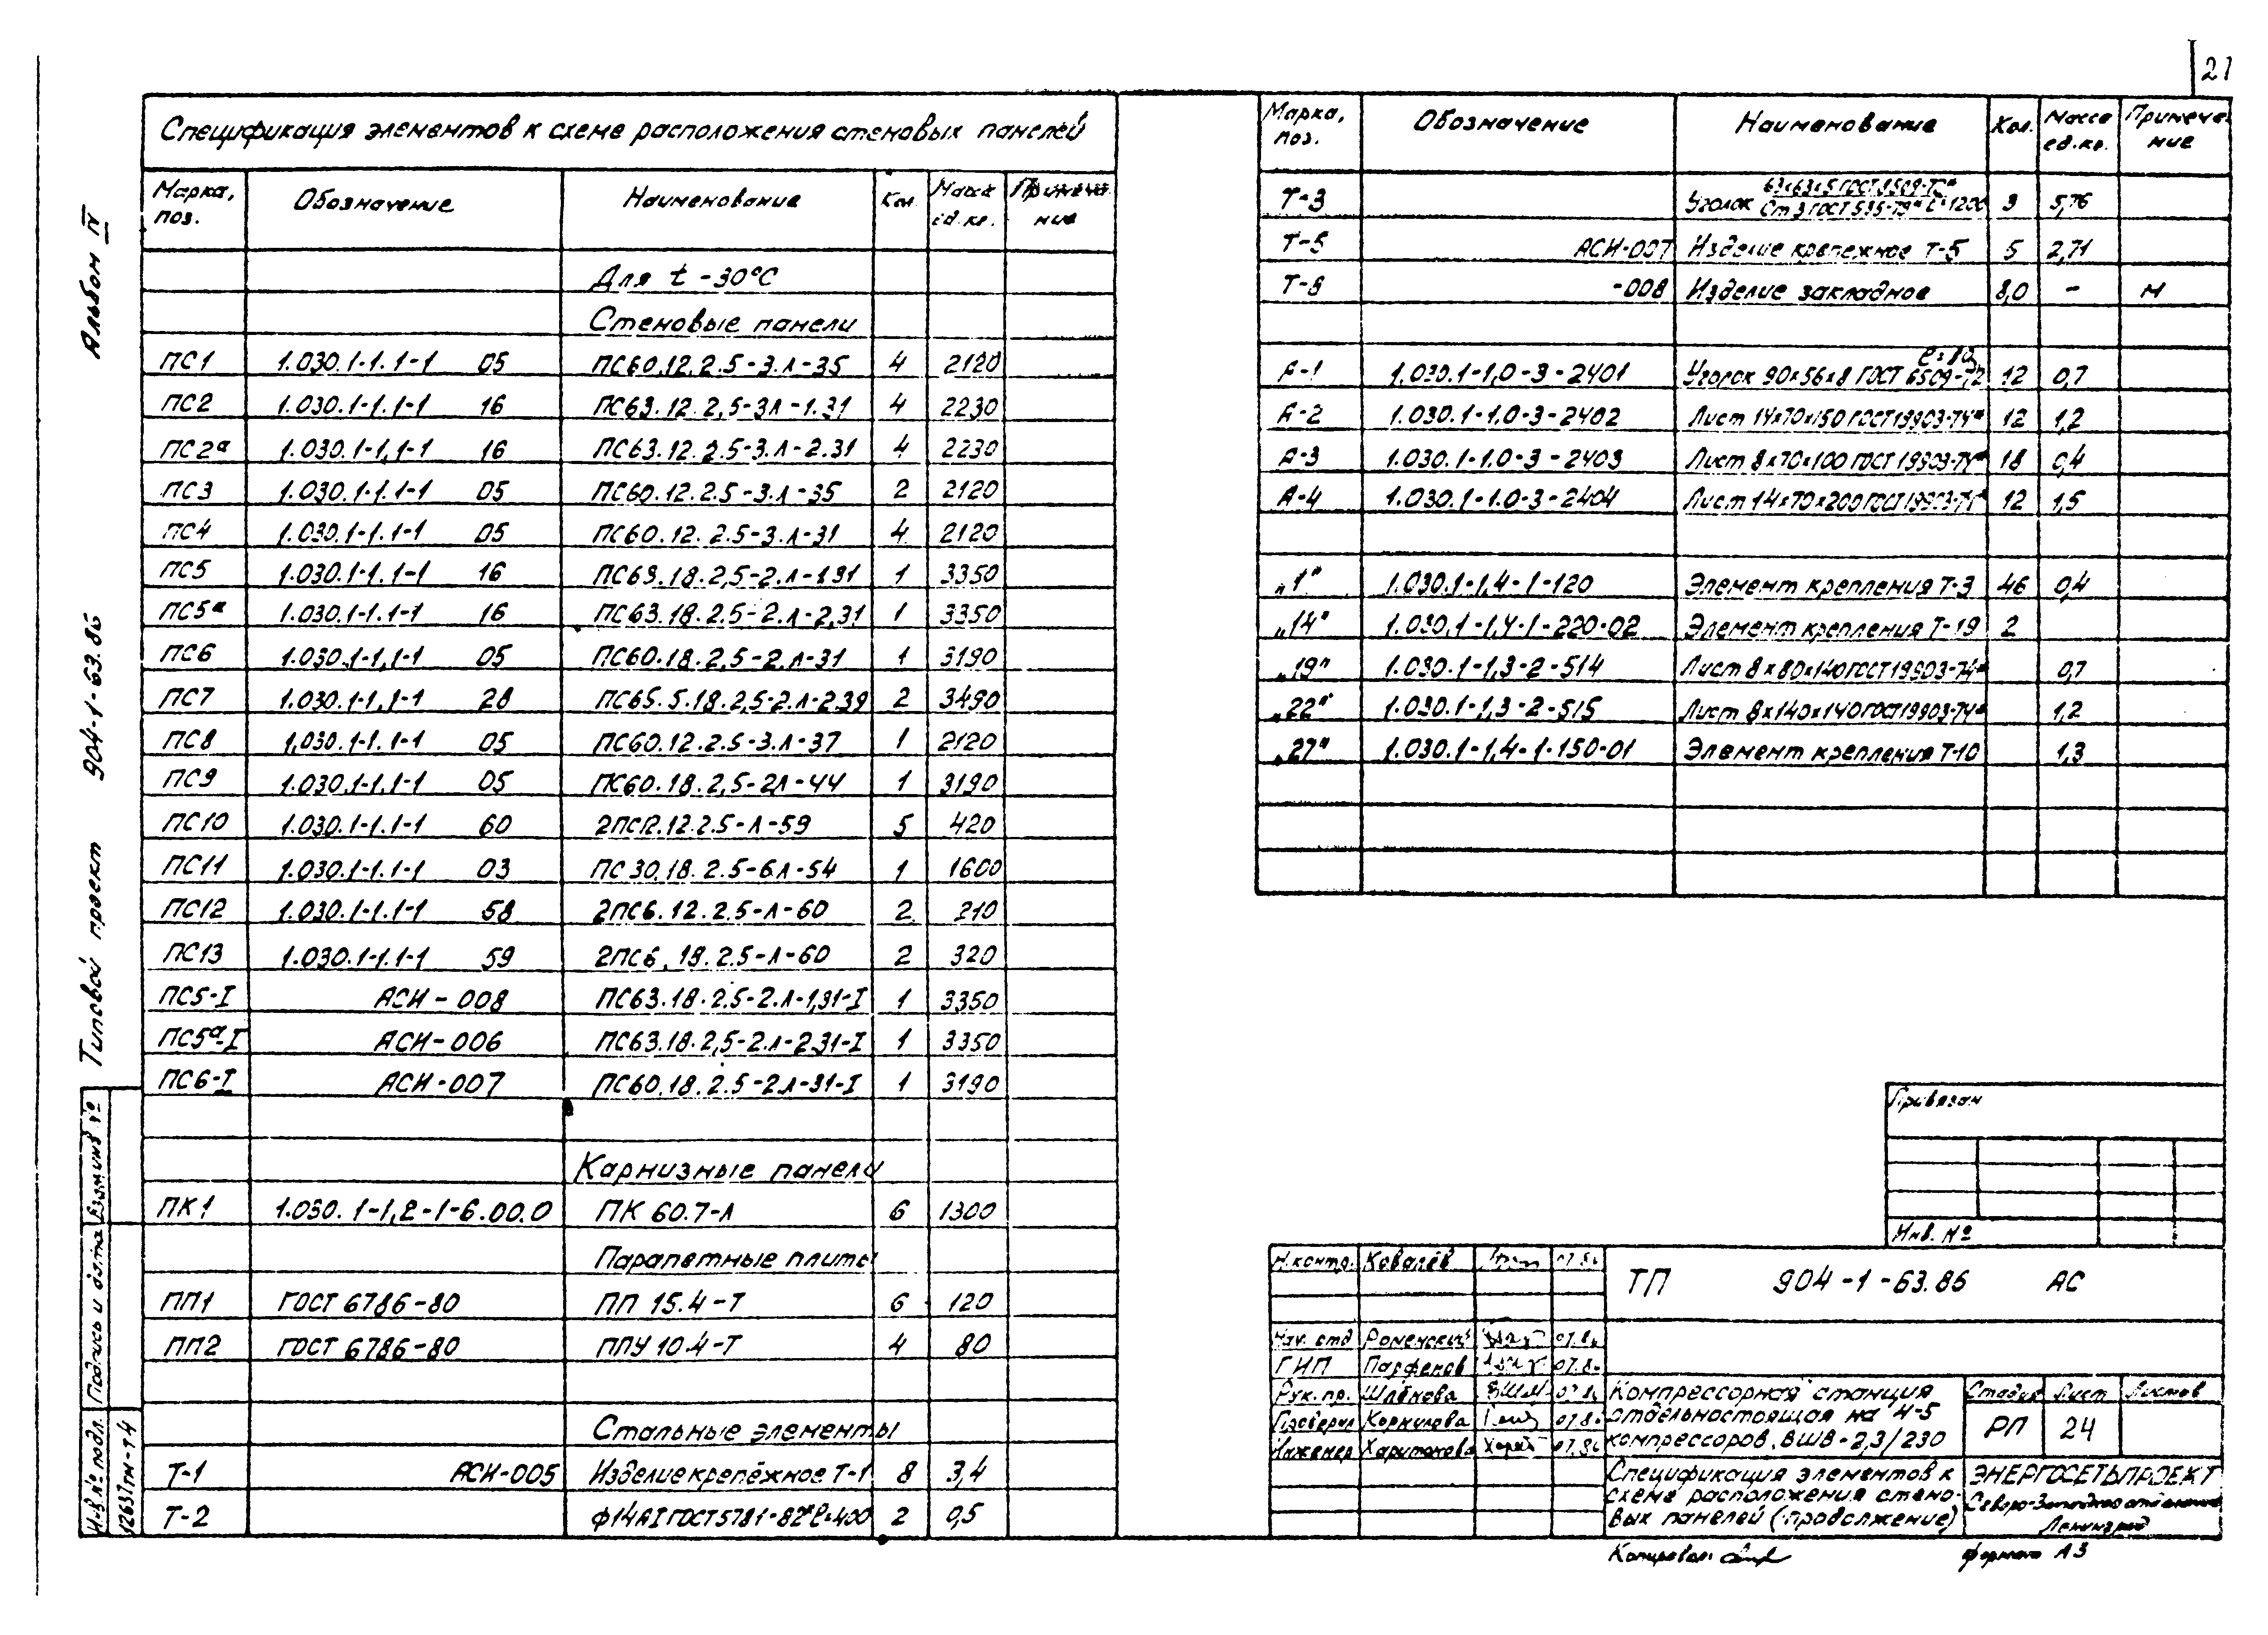 21
Альбом IV
904-1-63.86
Типовой проект
Взам.инв №
Подпись и дата
Инв.№ подл.
12637тм-т4
Спецификация элементов к схеме расположения стеновых панелей
Марка, поз. Обозначение Наименование Кол. Масса ед.кг. Примеча- ние
Для t -30°С
Стеновые панели
ПС1 1.030.1-1.1-1 05 ПС60.12.2.5-3.Л-35 4 2120
ПС2 1.030.1-1.1-1 16 ПС63.12.2,5-3Л-1.31 4 2230
ПС2а 1.030.1-1,1-1 16 ПС63.12.2.5-3.Л-2.31 4 2230
ПС3 1.030.1-1.1-1 05 ПС60.12.2.5-3.Л-35 2 2120
ПС4 1.030.1-1.1-1 05 ПС60.12.2.5-3.Л-31 4 2120
ПС5 1.030.1-1.1-1 16 ПС63.18.2,5-2.Л-1.31 1 3350
ПС5а 1.030.1-1.1-1 16 ПС63.18.2.5-2.Л-2,31 1 3350
ПС6 1.030.1-1,1-1 05 ПС60.18.2,5-2.Л-31 1 3190
ПС7 1.030.1-1,1-1 28 ПС65.5.18.2,5-2.Л-2.39 2 3490
ПС8 1,030.1-1.1-1 05 ПС60.12.2.5-3.Л-37 1 2120
ПС9 1.030.1-1.1-1 05 ПС60.18.2,5-2Л-44 1 3190
ПС10 1.030.1-1.1-1 60 2ПС12.12.2.5-Л-59 5 420
ПС11 1.030.1-1.1-1 03 ПС30.18.2.5-6Л-54 1 1600
ПС12 1.030.1-1.1-1 58 2ПС6.12.2.5-Л-60 2 210
ПС13 1.030.1-1.1-1 59 2ПС6.18.2.5-Л-60 2 320
ПС5-I АСИ-008 ПС63.18.2.5-2.Л-1,31-I 1 3350
ПС5а-I АСИ-006 ПС63.18.2,5-2.Л-2.31-I 1 3350
ПС6-I АСИ-007 ПС60.18.2.5-2Л-31-I 1 3190
Карнизные панели
ПК1 1.030.1-1,2-1-6.00.0 ПК 60.7-Л 6 1300
Парапетные плиты
ПП1 ГОСТ 6786-80 ПП 15.4-Т 6 120
ПП2 ГОСТ 6786-80 ППУ 10.4-Т 4 80
Стальные элементы
Т-1 АСИ-005 Изделие крепёжное Т-1 8 3,4
Т-2 ф14АI ГОСТ 5781-82* ℓ=400 2 0,5
Марка, поз. Обозначение Наименование Кол. Масса ед.кг. Примеча- ние
Т-3 Уголок 63х63х5 ГОСТ 8509-72* Ст3 ГОСТ 535-79* ℓ=1200 9 5,76
Т-5 АСИ-007 Изделие крепежное Т-5 5 2,71
Т-8 -008 Изделие закладное 8,0 - м
А-1 1.030.1-1,0-3-2401 Уголок 90х56х8 ГОСТ 6509-72 12 0,7
А-2 1.030.1-1,0-3-2402 Лист 14х70х150 ГОСТ 19903-74* 12 1,2
А-3 1.030.1-1.0-3-2403 Лист 8х70х100 ГОСТ 19903-74* 18 0,4
А-4 1.030.1-1.0-3-2404 Лист 14х70х200 ГОСТ 19903-74* 12 1,5
„1" 1.030.1-1,4-1-120 Элемент крепления Т-3 46 0,4
„14" 1.030.1-1,4-1-220-02 Элемент крепления Т-19 2
„19" 1.030.1-1,3-2-514 Лист 8х80х140 ГОСТ 19903-74* 0,7
„22" 1.030.1-1,3-2-515 Лист 8х140х140 ГОСТ 19903-74* 1,2
„27" 1.030.1-1,4-1-150-01 Элемент крепления Т-10 1,3
Привязан
Инв. №
Н.контр. Ковалёв 07.86
Нач. отд Роменский 07.86
ГИП Парфенов 07.86
Рук.пр. Шлёнова 07.86
Проверил Корнилова 07.86
Инженер Харитонова 07.86
ТП 904-1-63.86 АС
Компрессорная станция отдельностоящая на 4-5 компрессоров ВШВ-2,3/230
Стадия Лист Листов
РП 24
Спецификация элементов к схеме расположения стено- вых панелей (продолжение)
ЭНЕРГОСЕТЬПРОЕКТ
Северо-Западное отделение
Ленинград
Копировал
Формат А3